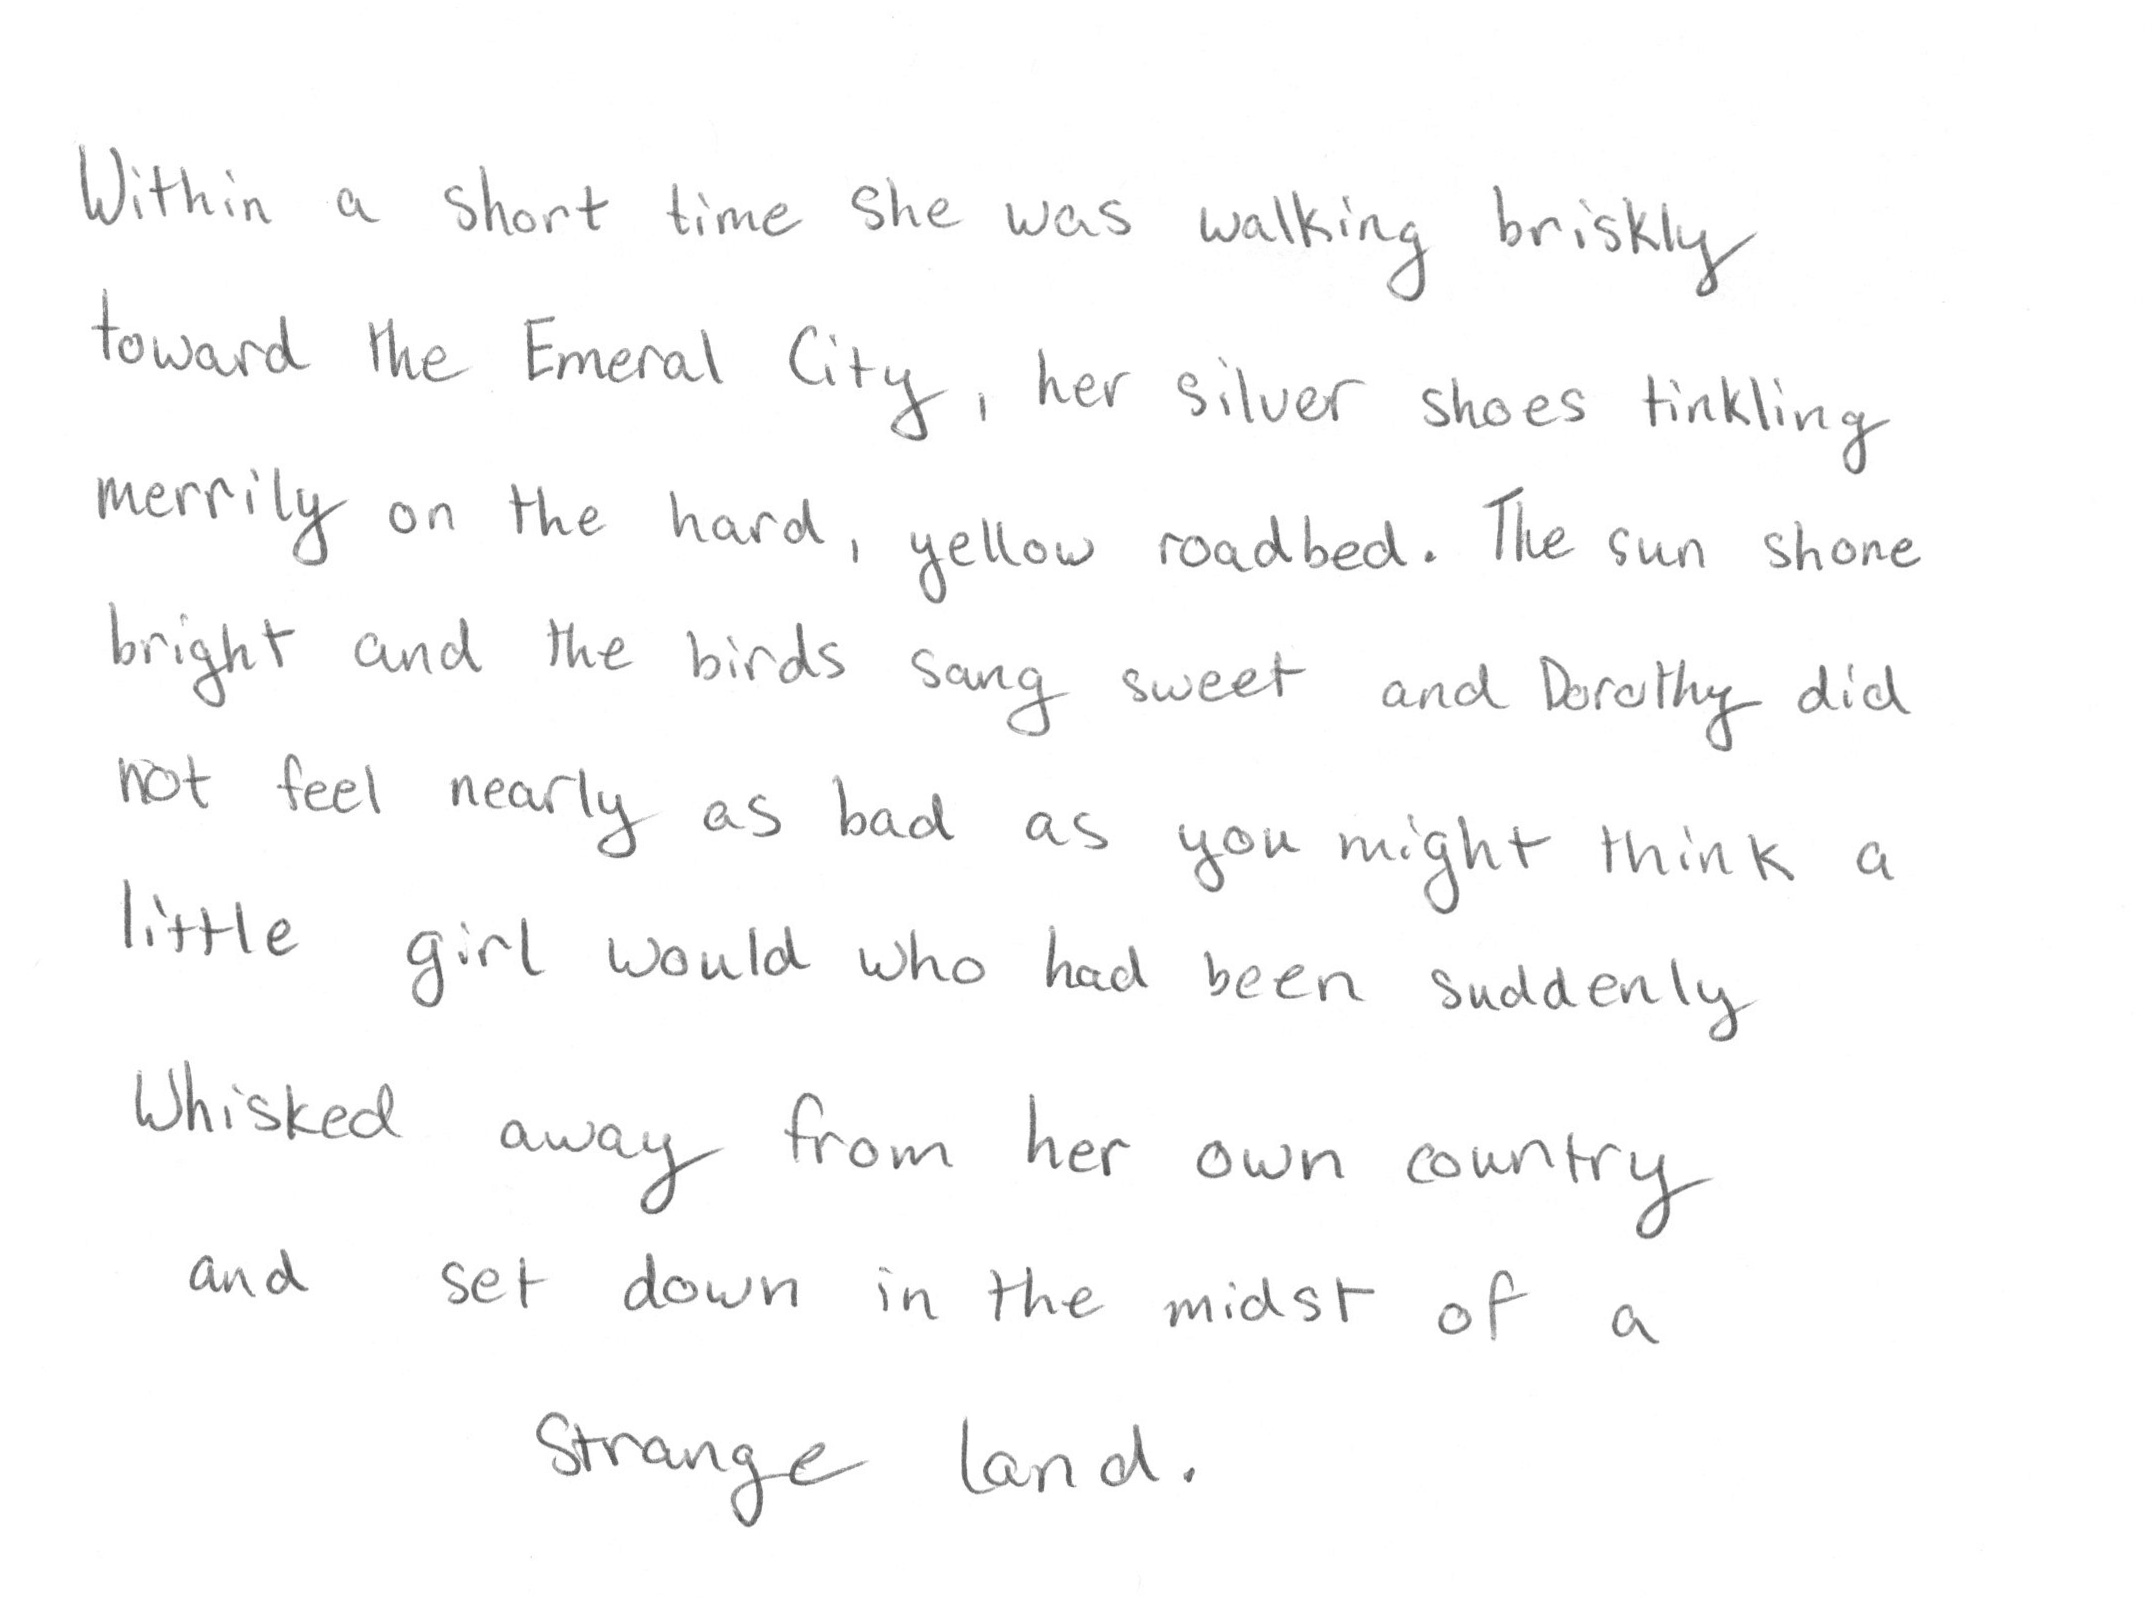 Within a short time she was walking briskly
toward the Emeral City, her silver shoes tinkling
merrily on the hard, yellow roadbed. The sun shone
bright and the birds sang sweet and Dorothy did
not feel nearly as bad as you might think a
little girl would who had been suddenly
Whisked away from her own country
and set down in the midst of a
Strange land.